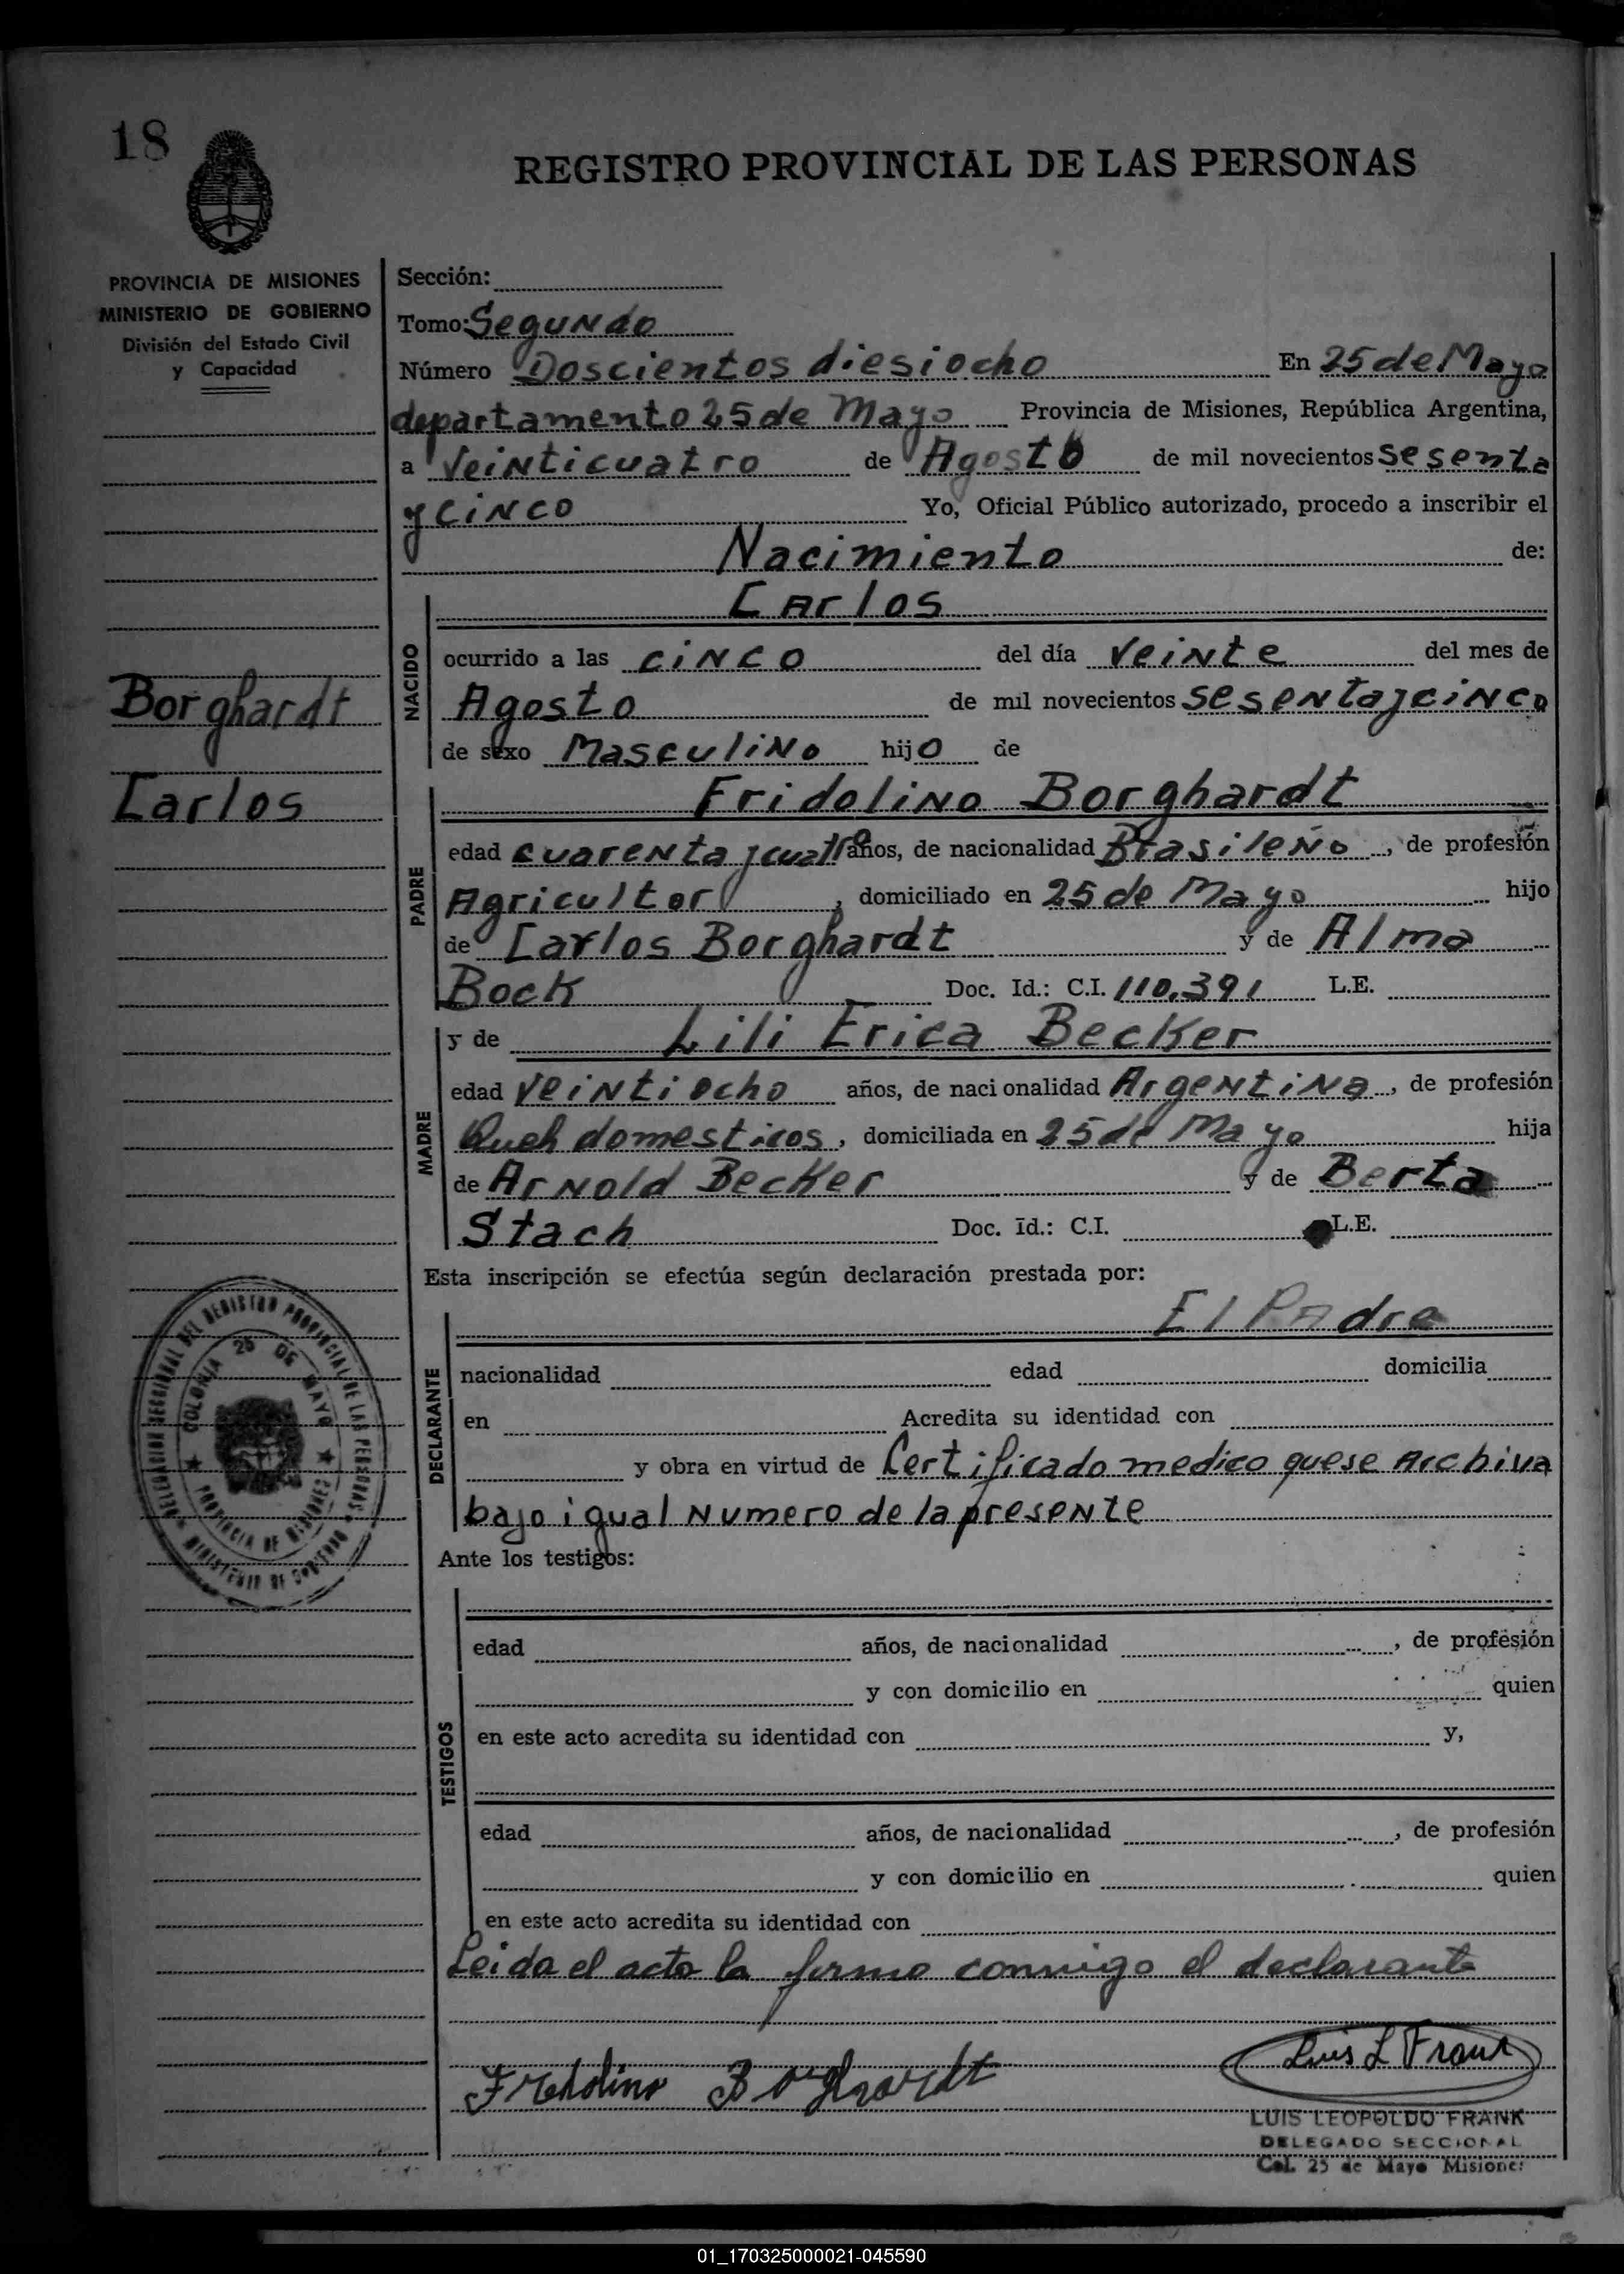 18
REGISTRO PROVINCIAL DE LAS PERSONAS
PROVINCIA DE MISIONES
MINISTERIO DE GOBIERNO
División del Estado Civil
y Capacidad
Sección:
Tomo: Segundo
Número Doscientos diesiocho En 25 de Mayo
departamento 25 de Mayo Provincia de Misiones, República Argentina,
a Veinticuatro de Agosto de mil novecientos Sesenta
y cinco Yo, Oficial Público autorizado, procedo a inscribir el
Nacimiento de:
Carlos
NACIDO
ocurrido a las cinco del día Veinte del mes de
Agosto de mil novecientos sesenta y cinco
de sexo Masculino hijo de
Borghardt
Carlos
Fridolino Borghardt
PADRE
edad cuarenta y cuatro años, de nacionalidad Brasileño, de profesión
Agricultor, domiciliado en 25 de Mayo hijo
de Carlos Borghardt y de Alma
Bock Doc. Id.: C.I. 110.391 L.E.
y de Lili Erica Becker
MADRE
edad Veintiocho años, de nacionalidad Argentina, de profesión
Queh domesticos, domiciliada en 25 de Mayo hija
de Arnold Becker y de Berta
Stach Doc. Id.: C.I. L.E.
Esta inscripción se efectúa según declaración prestada por:
El Padre
DECLARANTE
nacionalidad edad domicilia
en Acredita su identidad con
y obra en virtud de Certificado medico que se Archiva
bajo igual Numero de la presente
Ante los testigos:
TESTIGOS
edad años, de nacionalidad , de profesión
y con domicilio en quien
en este acto acredita su identidad con y,
edad años, de nacionalidad , de profesión
y con domicilio en quien
en este acto acredita su identidad con
Leida el acta la firma conmigo el declarante
DELEGACION SECCIONAL DEL REGISTRO PROVINCIAL DE LAS PERSONAS
MINISTERIO DE GOBIERNO
COLONIA 25 DE MAYO
PROVINCIA DE MISIONES
Fridolino Borghardt
Luis L Frank
LUIS LEOPOLDO FRANK
DELEGADO SECCIONAL
Col. 25 de Mayo Misiones
01_170325000021-045590